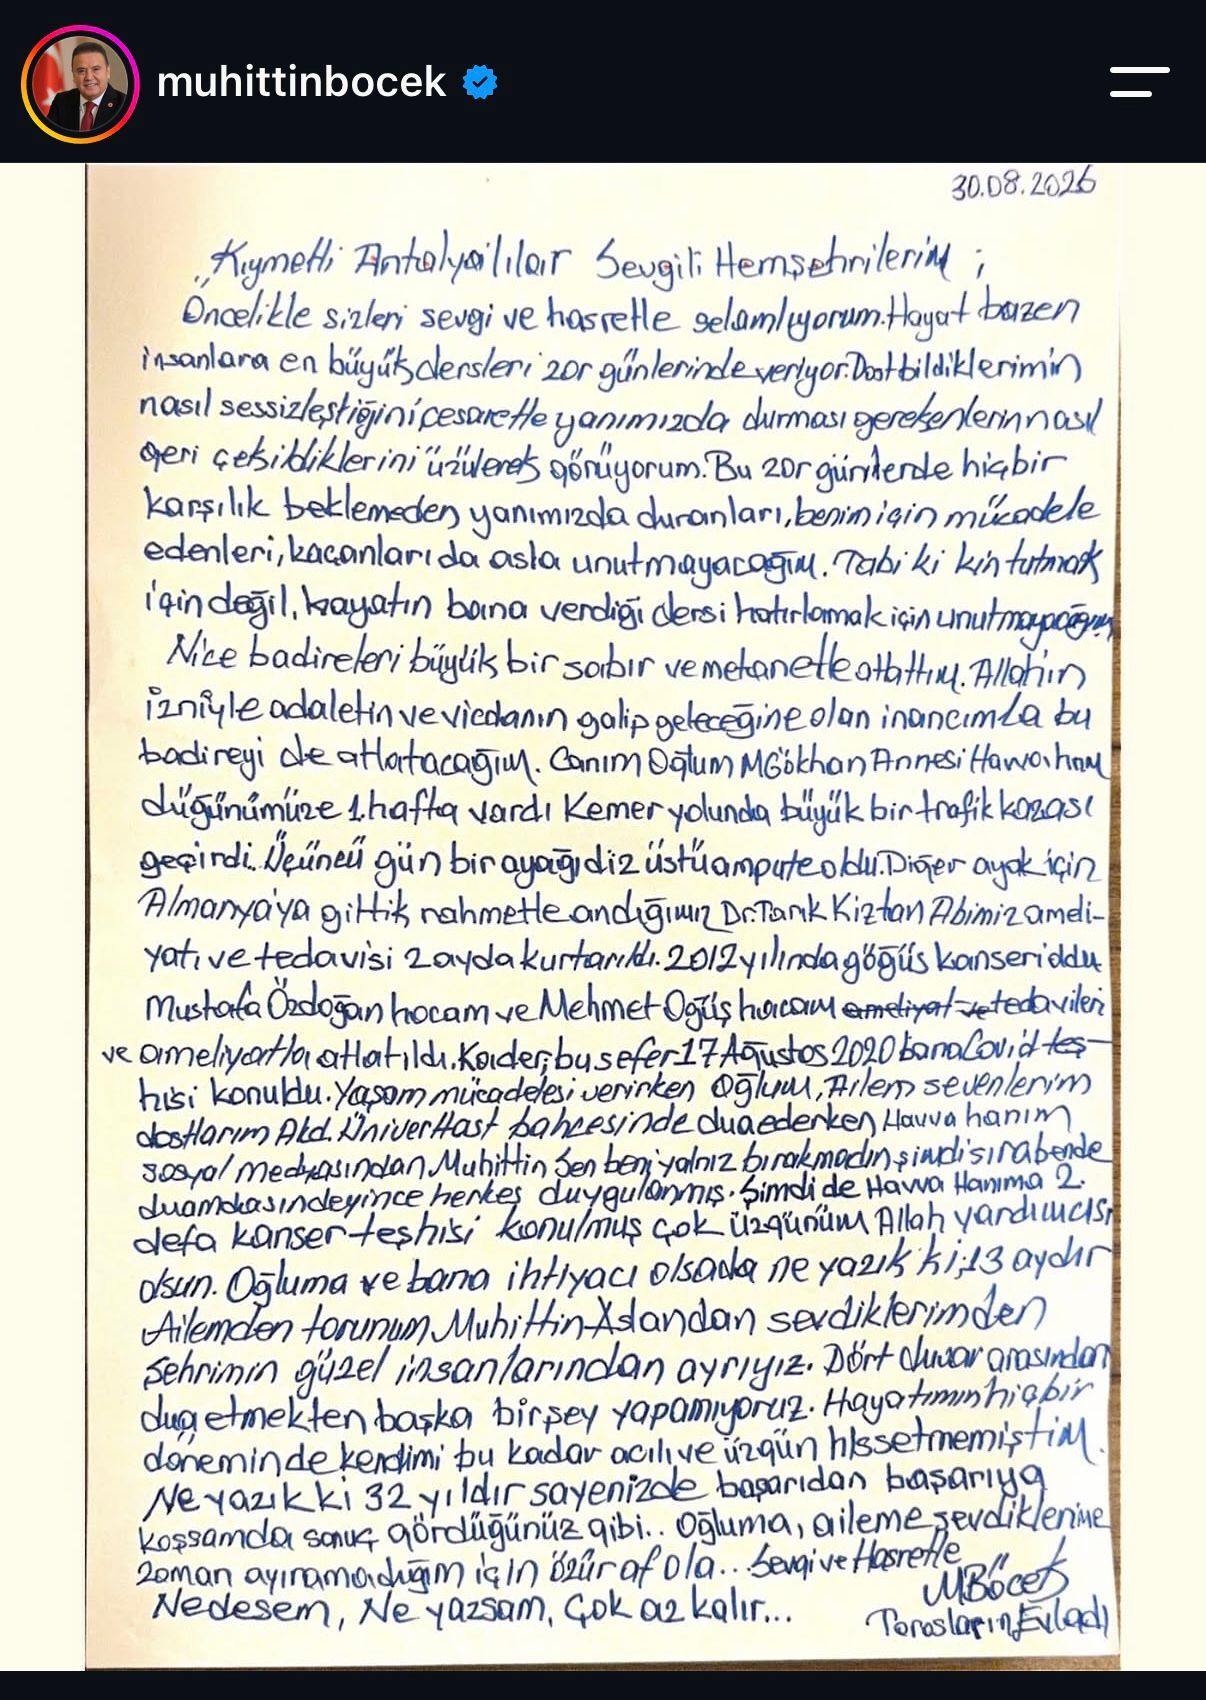 muhittinbocek
30.08.2026
"Kıymetli Antalyalılar Sevgili Hemşehrilerim ;
Öncelikle sizleri sevgi ve hasretle selamlıyorum. Hayat bazen
insanlara en büyük dersleri zor günlerinde veriyor. Dost bildiklerimin
nasıl sessizleştiğini cesaretle yanımızda durması gerekenlerin nasıl
geri çekildiklerini üzülerek görüyorum. Bu zor günlerde hiçbir
karşılık beklemeden yanımızda duranları, benim için mücadele
edenleri, kaçanları da asla unutmayacağım. Tabi ki kin tutmak
için değil, hayatın bana verdiği dersi hatırlamak için unutmayacağım
Nice badireleri büyük bir sabır ve metanetle atlattım. Allahın
izniyle adaletin ve vicdanın galip geleceğine olan inancımla bu
badireyi de atlatacağım. Canım Oğlum MGökhan Annesi Havva hnm
düğünümüze 1. hafta vardı Kemer yolunda büyük bir trafik kazası
geçirdi. Üçüncü gün bir ayağı diz üstü ampute oldu. Diğer ayak için
Almanya'ya gittik rahmetle andığımız Dr. Tarık Kiztan Abimiz ameli-
yatı ve tedavisi 2 ayda kurtarıldı. 2012 yılında göğüs kanseri oldu
Mustafa Özdoğan hocam ve Mehmet Oğüş hocam ameliyat ve tedavileri
ve ameliyatla atlatıldı. Kader; bu sefer 17 Ağustos 2020 bana Covid teş-
hisi konuldu. Yaşam mücadelesi verirken Oğlum, Ailem sevenlerim
dostlarım Akd. Üniver Hast bahçesinde dua ederken Havva hanım
sosyal medyasından Muhittin Sen beni yalnız bırakmadın şimdi sıra bende
duamdasın deyince herkes duygulanmış. Şimdi de Havva Hanıma 2.
defa kanser teşhisi konulmuş çok üzgünüm Allah yardımcısı
olsun. Oğluma ve bana ihtiyacı olsada ne yazık ki; 13 aydır
Ailemden torunum Muhittin Aslandan sevdiklerimden
Şehrimin güzel insanlarından ayrıyız. Dört duvar arasından
dua etmekten başka bir şey yapamıyoruz. Hayatımın hiçbir
döneminde kendimi bu kadar acılı ve üzgün hissetmemiştim.
Ne yazık ki 32 yıldır sayenizde başarıdan başarıya
koşsamda sonuç gördüğünüz gibi.. Oğluma, aileme sevdiklerime
zaman ayıramadığım için özür af ola... Sevgi ve Hasretle
Ne desem, Ne yazsam, Çok az kalır...
MBöcek
Torosların Evladı